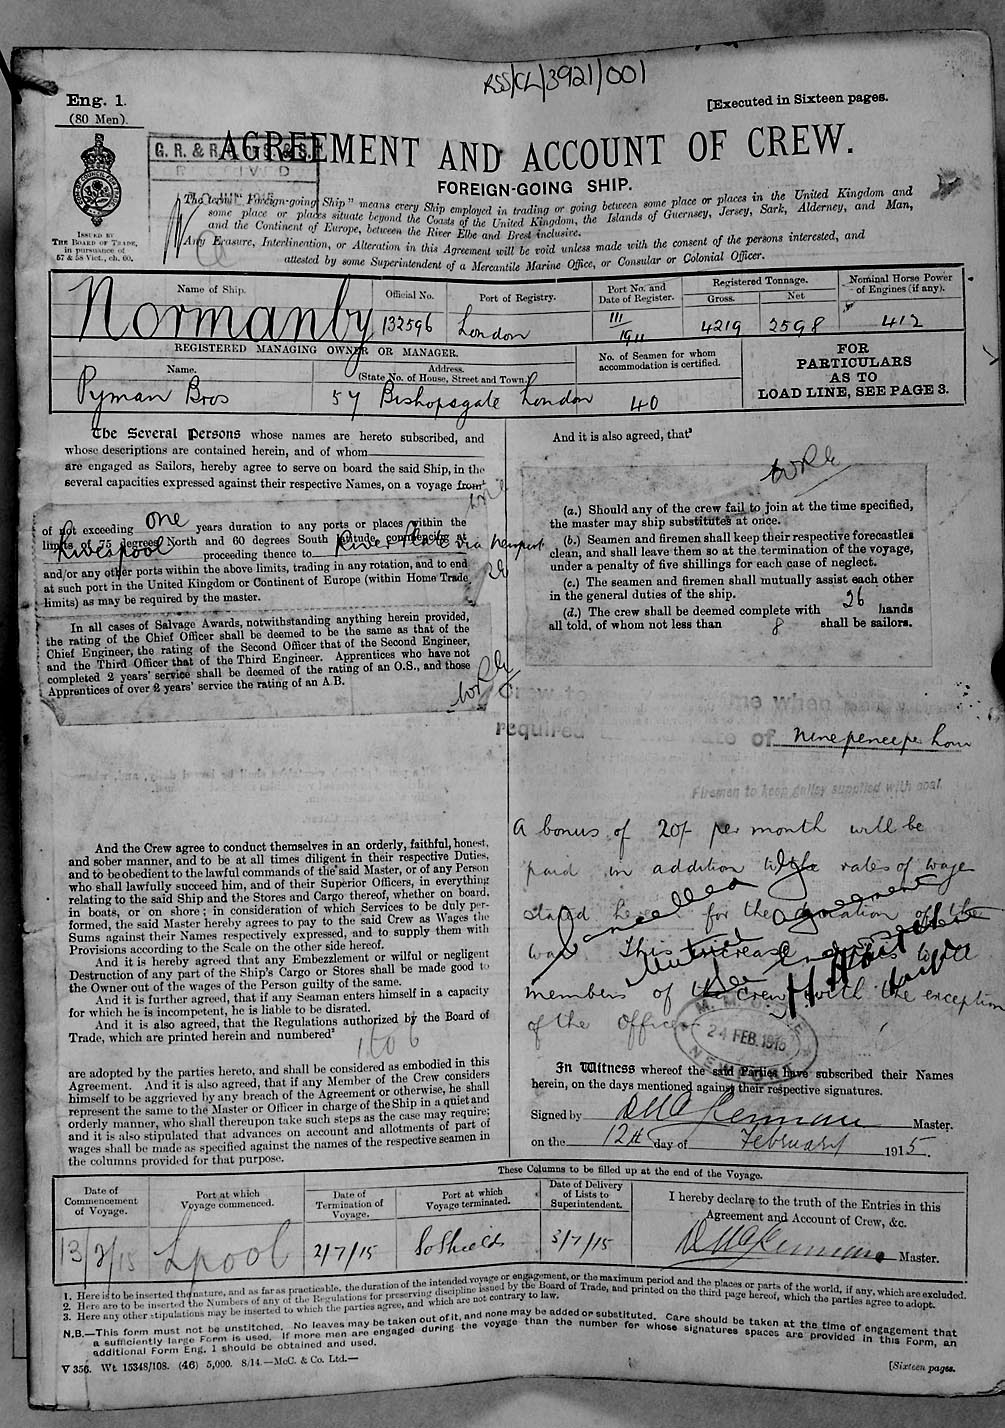 RSS/CL/3921/001
Eng. 1.
(80 Men).
[Executed in Sixteen pages.
AGREEMENT AND ACCOUNT OF CREW.
FOREIGN-GOING SHIP.
ISSUED BY
THE BOARD OF TRADE,
in pursuance of
57 & 58 Vict., ch. 60.
The term "Foreign-going Ship" means every Ship employed in trading or going between some place or places in the United Kingdom and
some place or places situate beyond the Coasts of the United Kingdom, the Islands of Guernsey, Jersey, Sark, Alderney, and Man,
and the Continent of Europe, between the River Elbe and Brest inclusive.
Any Erasure, Interlineation, or Alteration in this Agreement will be void unless made with the consent of the persons interested, and
attested by some Superintendent of a Mercantile Marine Office, or Consular or Colonial Officer.
Name of Ship.
Official No.
Port of Registry.
Port No. and
Date of Register.
Registered Tonnage.
Gross.
Net
Nominal Horse Power
of Engines (if any).
Normanby
132596
London
111
1911
4219
2598
412
REGISTERED MANAGING OWNER OR MANAGER.
Name.
Address.
(State No. of House, Street and Town.)
No. of Seamen for whom
accommodation is certified.
FOR
PARTICULARS
AS TO
LOAD LINE, SEE PAGE 3.
Pyman Bros
57 Bishopsgate London
40
The Several Persons whose names are hereto subscribed, and
whose descriptions are contained herein, and of whom
are engaged as Sailors, hereby agree to serve on board the said Ship, in the
several capacities expressed against their respective Names, on a voyage from
of not exceeding one years duration to any ports or places within the
limits of 75 degrees North and 60 degrees South latitude, commencing at
Liverpool proceeding thence to River Plate via Newport
and/or any other ports within the above limits, trading in any rotation, and to end
at such port in the United Kingdom or Continent of Europe (within Home Trade
limits) as may be required by the master.
In all cases of Salvage Awards, notwithstanding anything herein provided,
the rating of the Chief Officer shall be deemed to be the same as that of the
Chief Engineer, the rating of the Second Officer that of the Second Engineer,
and the Third Officer that of the Third Engineer. Apprentices who have not
completed 2 years' service shall be deemed of the rating of an O.S., and those
Apprentices of over 2 years' service the rating of an A.B.
And the Crew agree to conduct themselves in an orderly, faithful, honest,
and sober manner, and to be at all times diligent in their respective Duties,
and to be obedient to the lawful commands of the said Master, or of any Person
who shall lawfully succeed him, and of their Superior Officers, in everything
relating to the said Ship and the Stores and Cargo thereof, whether on board,
in boats, or on shore; in consideration of which Services to be duly per-
formed, the said Master hereby agrees to pay to the said Crew as Wages the
Sums against their Names respectively expressed, and to supply them with
Provisions according to the Scale on the other side hereof.
And it is hereby agreed that any Embezzlement or wilful or negligent
Destruction of any part of the Ship's Cargo or Stores shall be made good to
the Owner out of the wages of the Person guilty of the same.
And it is further agreed, that if any Seaman enters himself in a capacity
for which he is incompetent, he is liable to be disrated.
And it is also agreed, that the Regulations authorized by the Board of
Trade, which are printed herein and numbered²
1 to 6
are adopted by the parties hereto, and shall be considered as embodied in this
Agreement. And it is also agreed, that if any Member of the Crew considers
himself to be aggrieved by any breach of the Agreement or otherwise, he shall
represent the same to the Master or Officer in charge of the Ship in a quiet and
orderly manner, who shall thereupon take such steps as the case may require;
and it is also stipulated that advances on account and allotments of part of
wages shall be made as specified against the names of the respective seamen in
the columns provided for that purpose.
And it is also agreed, that³
(a.) Should any of the crew fail to join at the time specified,
the master may ship substitutes at once.
(b.) Seamen and firemen shall keep their respective forecastles
clean, and shall leave them so at the termination of the voyage,
under a penalty of five shillings for each case of neglect.
(c.) The seamen and firemen shall mutually assist each other
in the general duties of the ship.
(d.) The crew shall be deemed complete with 26 hands
all told, of whom not less than 8 shall be sailors.
Crew to me when
required rate of ninepence per hour
Firemen to keep galley supplied with coal
A bonus of 20/- per month will be
paid in addition to the rates of wage
stated herein for the duration of the
war. This increase applies to all
members of the crew with the exception
of the officers
Cancelled
agreement
24 FEB. 1915
In Witness whereof the said Parties have subscribed their Names
herein, on the days mentioned against their respective signatures.
Signed by Master.
on the 12th day of February 1915.
These Columns to be filled up at the end of the Voyage.
Date of
Commencement
of Voyage.
Port at which
Voyage commenced.
Date of
Termination of
Voyage.
Port at which
Voyage terminated.
Date of Delivery
of Lists to
Superintendent.
I hereby declare to the truth of the Entries in this
Agreement and Account of Crew, &c.
13/2/15
L'pool
2/7/15
So Shields
3/7/15
Master.
1. Here is to be inserted the nature, and as far as practicable, the duration of the intended voyage or engagement, or the maximum period and the places or parts of the world, if any, which are excluded.
2. Here are to be inserted the Numbers of any of the Regulations for preserving discipline issued by the Board of Trade, and printed on the third page hereof, which the parties agree to adopt.
3. Here any other stipulations may be inserted to which the parties agree, and which are not contrary to law.
N.B.—This form must not be unstitched. No leaves may be taken out of it, and none may be added or substituted. Care should be taken at the time of engagement that
a sufficiently large Form is used. If more men are engaged during the voyage than the number for whose signatures spaces are provided in this Form, an
additional Form Eng. 1 should be obtained and used.
V 356. Wt. 15348/108. (46) 5,000. 8/14.—McC. & Co. Ltd.—
[Sixteen pages.